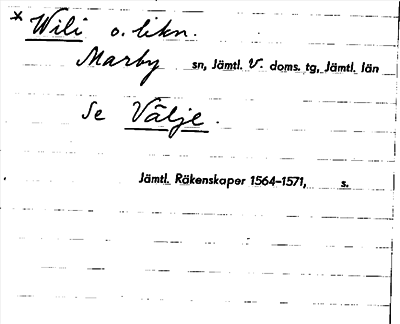 * Wili o. likn.
Marby sn, Jämtl. V. doms. tg, Jämtl. län
Se Välje.
Jämtl. Räkenskaper 1564-1571, s.